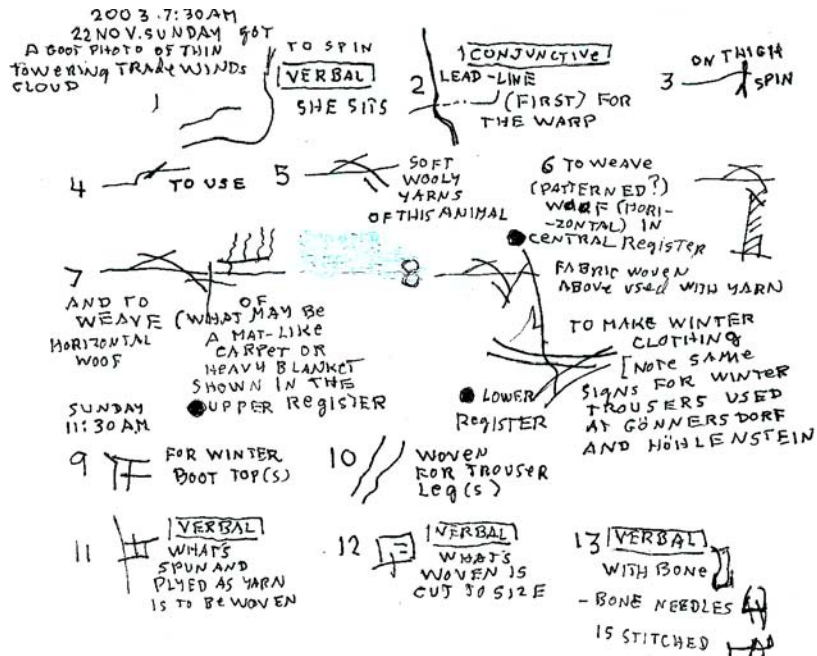 2003.7:30AM
22 NOV. SUNDAY GOT
A GOOT PHOTO OF THIN
TOWERING TRADE WINDS
CLOUD
1
TO SPIN
VERBAL
SHE SITS
2
CONJUNCTIVE
LEAD-LINE
(FIRST) FOR
THE WARP
3
ON THIGH
SPIN
4
TO USE
5
SOFT
WOOLY
YARNS
OF THIS ANIMAL
6 TO WEAVE
(PATTERNED?)
WOOF (HORI-
-ZONTAL) IN
CENTRAL REGISTER
7
AND TO
WEAVE
HORIZONTAL
WOOF
OF
(WHAT MAY BE
A MAT-LIKE
CARPET OR
HEAVY BLANKET
SHOWN IN THE
UPPER REGISTER
8
FABRIC WOVEN
ABOVE USED WITH YARN
TO MAKE WINTER
CLOTHING
[NOTE SAME
SIGNS FOR WINTER
TROUSERS USED
AT GÖNNERSDORF
AND HÖHLENSTEIN
LOWER
REGISTER
SUNDAY
11:30 AM
9
FOR WINTER
BOOT TOP(S)
10
WOVEN
FOR TROUSER
LEG(S)
11
VERBAL
WHAT'S
SPUN AND
PLYED AS YARN
IS TO BE WOVEN
12
VERBAL
WHAT'S
WOVEN IS
CUT TO SIZE
13
VERBAL
WITH BONE
- BONE NEEDLES
IS STITCHED